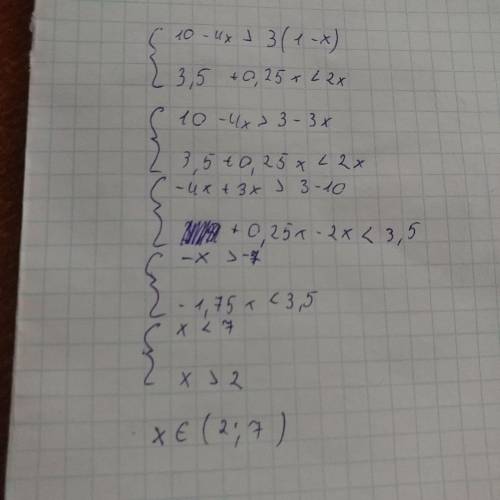 10 - 4x > 3(1 - x)
3,5 + 0,25x < 2x
10 - 4x > 3 - 3x
3,5 + 0,25x < 2x
-4x + 3x > 3 - 10
+ 0,25x - 2x < 3,5
-x > -7
-1,75x < 3,5
x < 7
x > 2
x ∈ (2; 7)